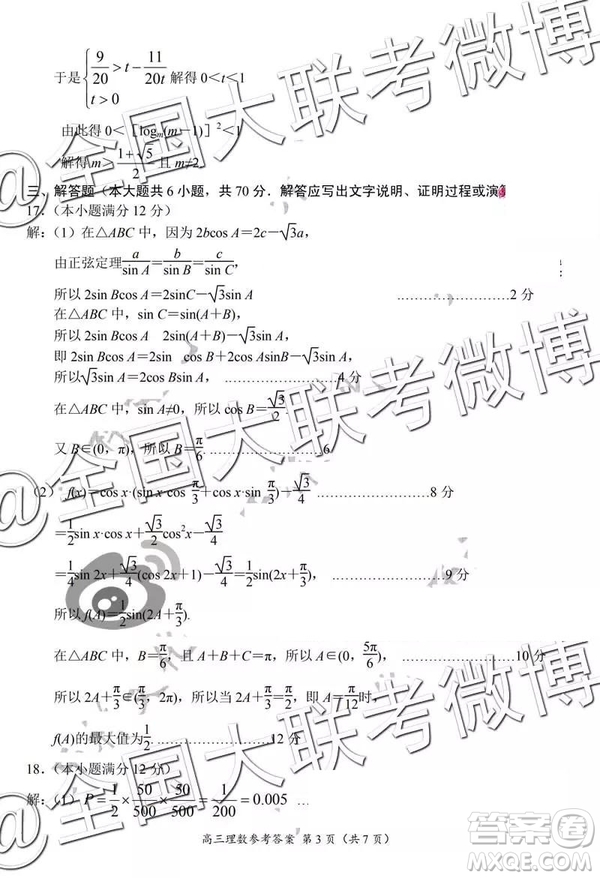 于是{9/20>t-11/20t t>0 解得 0<t<1
由此得 0<[logm(m-1)]²<1
解得 m>(1+√5)/2 且 m≠2.
三、解答题(本大题共 6 小题，共 70 分．解答应写出文字说明、证明过程或演
17．(本小题满分 12 分)
解：(1)在△ABC 中，因为 2bcos A=2c-√3a，
由正弦定理 a/sin A=b/sin B=c/sin C，
所以 2sin Bcos A=2sinC-√3sin A ……………………2 分
在△ABC 中，sin C=sin(A+B)，
所以 2sin Bcos A 2sin(A+B)-√3sin A，
即 2sin Bcos A=2sin cos B+2cos AsinB-√3sin A，
所以√3sin A=2cos Bsin A， ……………………4 分
在△ABC 中，sin A≠0，所以 cos B=√3/2.
又 B∈(0，π)，所以 B=π/6. ……………………6
(2) f(x)=cos x·(sin x·cos π/3+cos x·sin π/3)-√3/4 ……………………8 分
=1/2sin x·cos x+√3/2cos²x-√3/4
=1/4sin 2x+√3/4(cos 2x+1)-√3/4=1/2sin(2x+π/3)， ……………………9 分
所以 f(A)=1/2sin(2A+π/3).
在△ABC 中，B=π/6，且 A+B+C=π，所以 A∈(0，5π/6) ……………………10 分
所以 2A+π/3∈(π/3，2π)，所以 2A+π/3=π/2，即 A=π/12时，
f(A)的最大值为1/2. ……………………12 分
18．(本小题满分 12 分)
解：(1) P=1/2×50/500×50/500=1/200=0.005 …
高三理数参考答案 第 3 页（共 7 页）
@全国大联考微博
@全国大联考微博
@全国大联考微博
答案圈
MXQE.COM